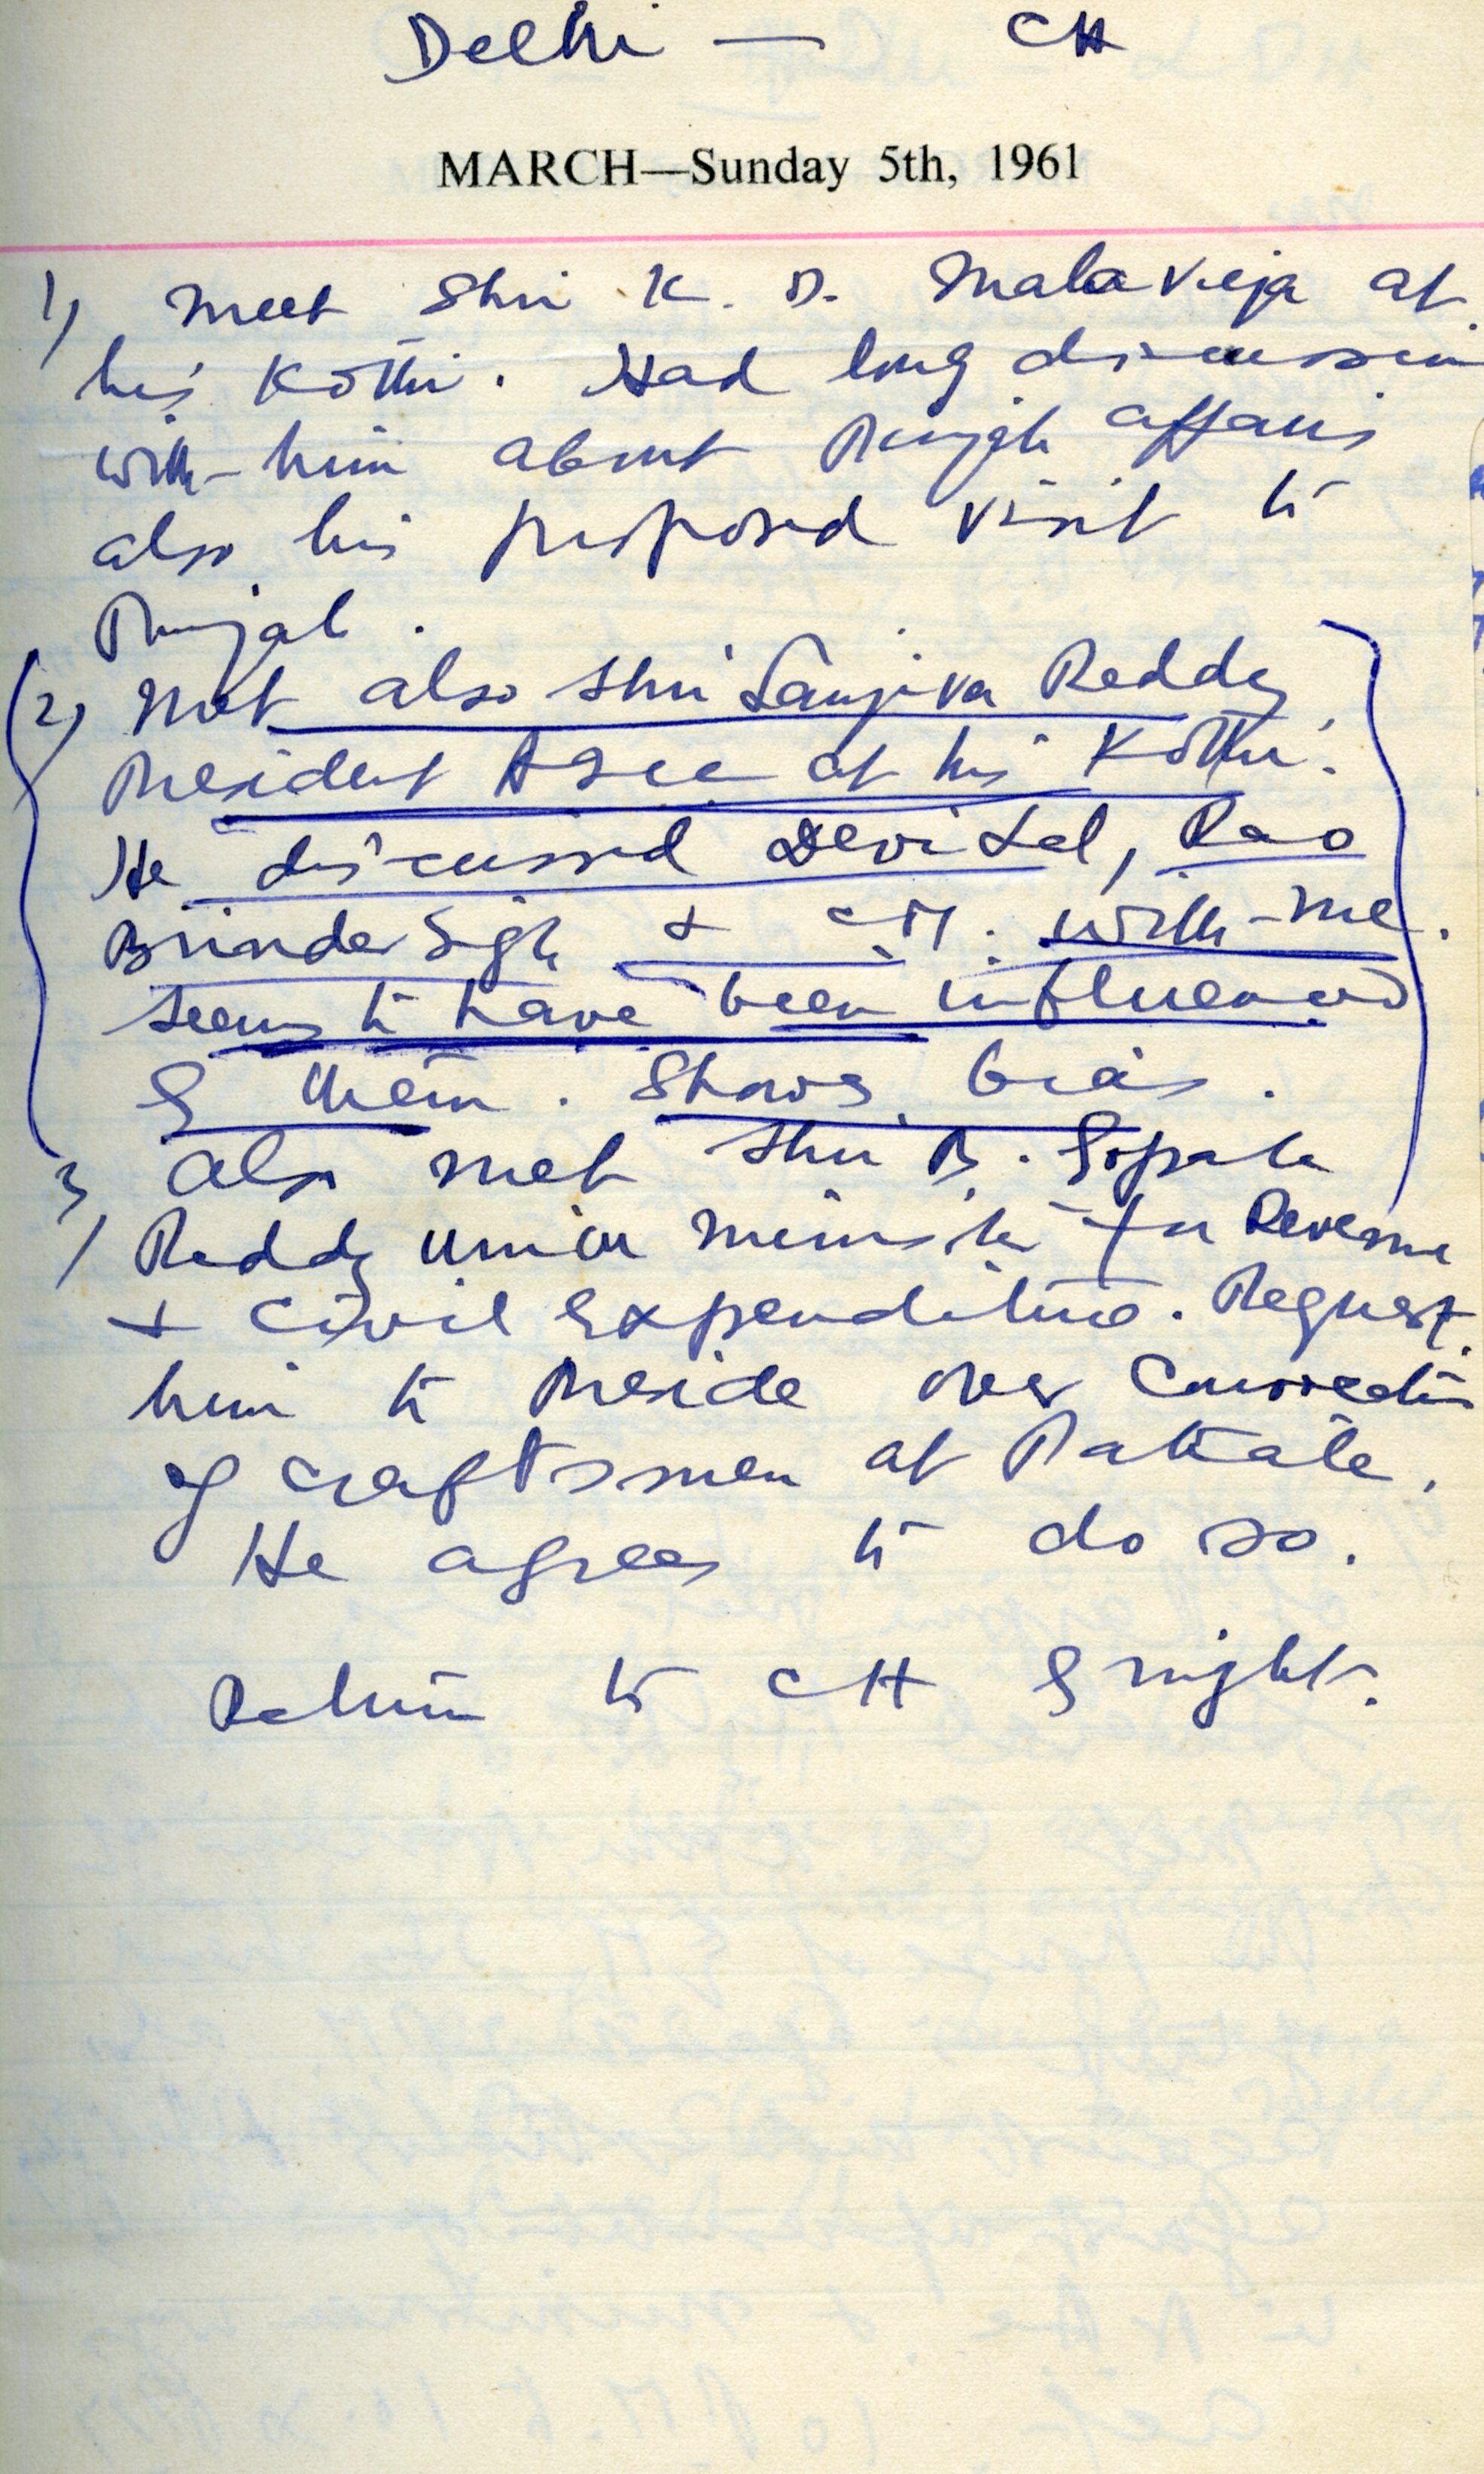 Delhi — CH
MARCH—Sunday 5th, 1961
1) Meet Shri K. D. Malaviya at
his Kothi. Had long discussion
with him about Punjab affairs
also his proposed visit to
Punjab.
2) Met also Shri Sanjiva Reddy
President AICC at his Kothi.
He discussed Devi Lal, Rao
Brinder Sigh & CM. with me.
Seems to have been influenced
by them. Shows bias.
3) Also met Shri B. Gopala
Reddy Union Minister for Revenue
& Civil Expenditure. Request
him to Preside over Convention
of craftsmen at Patiala.
He agrees to do so.
Return to CH by night.